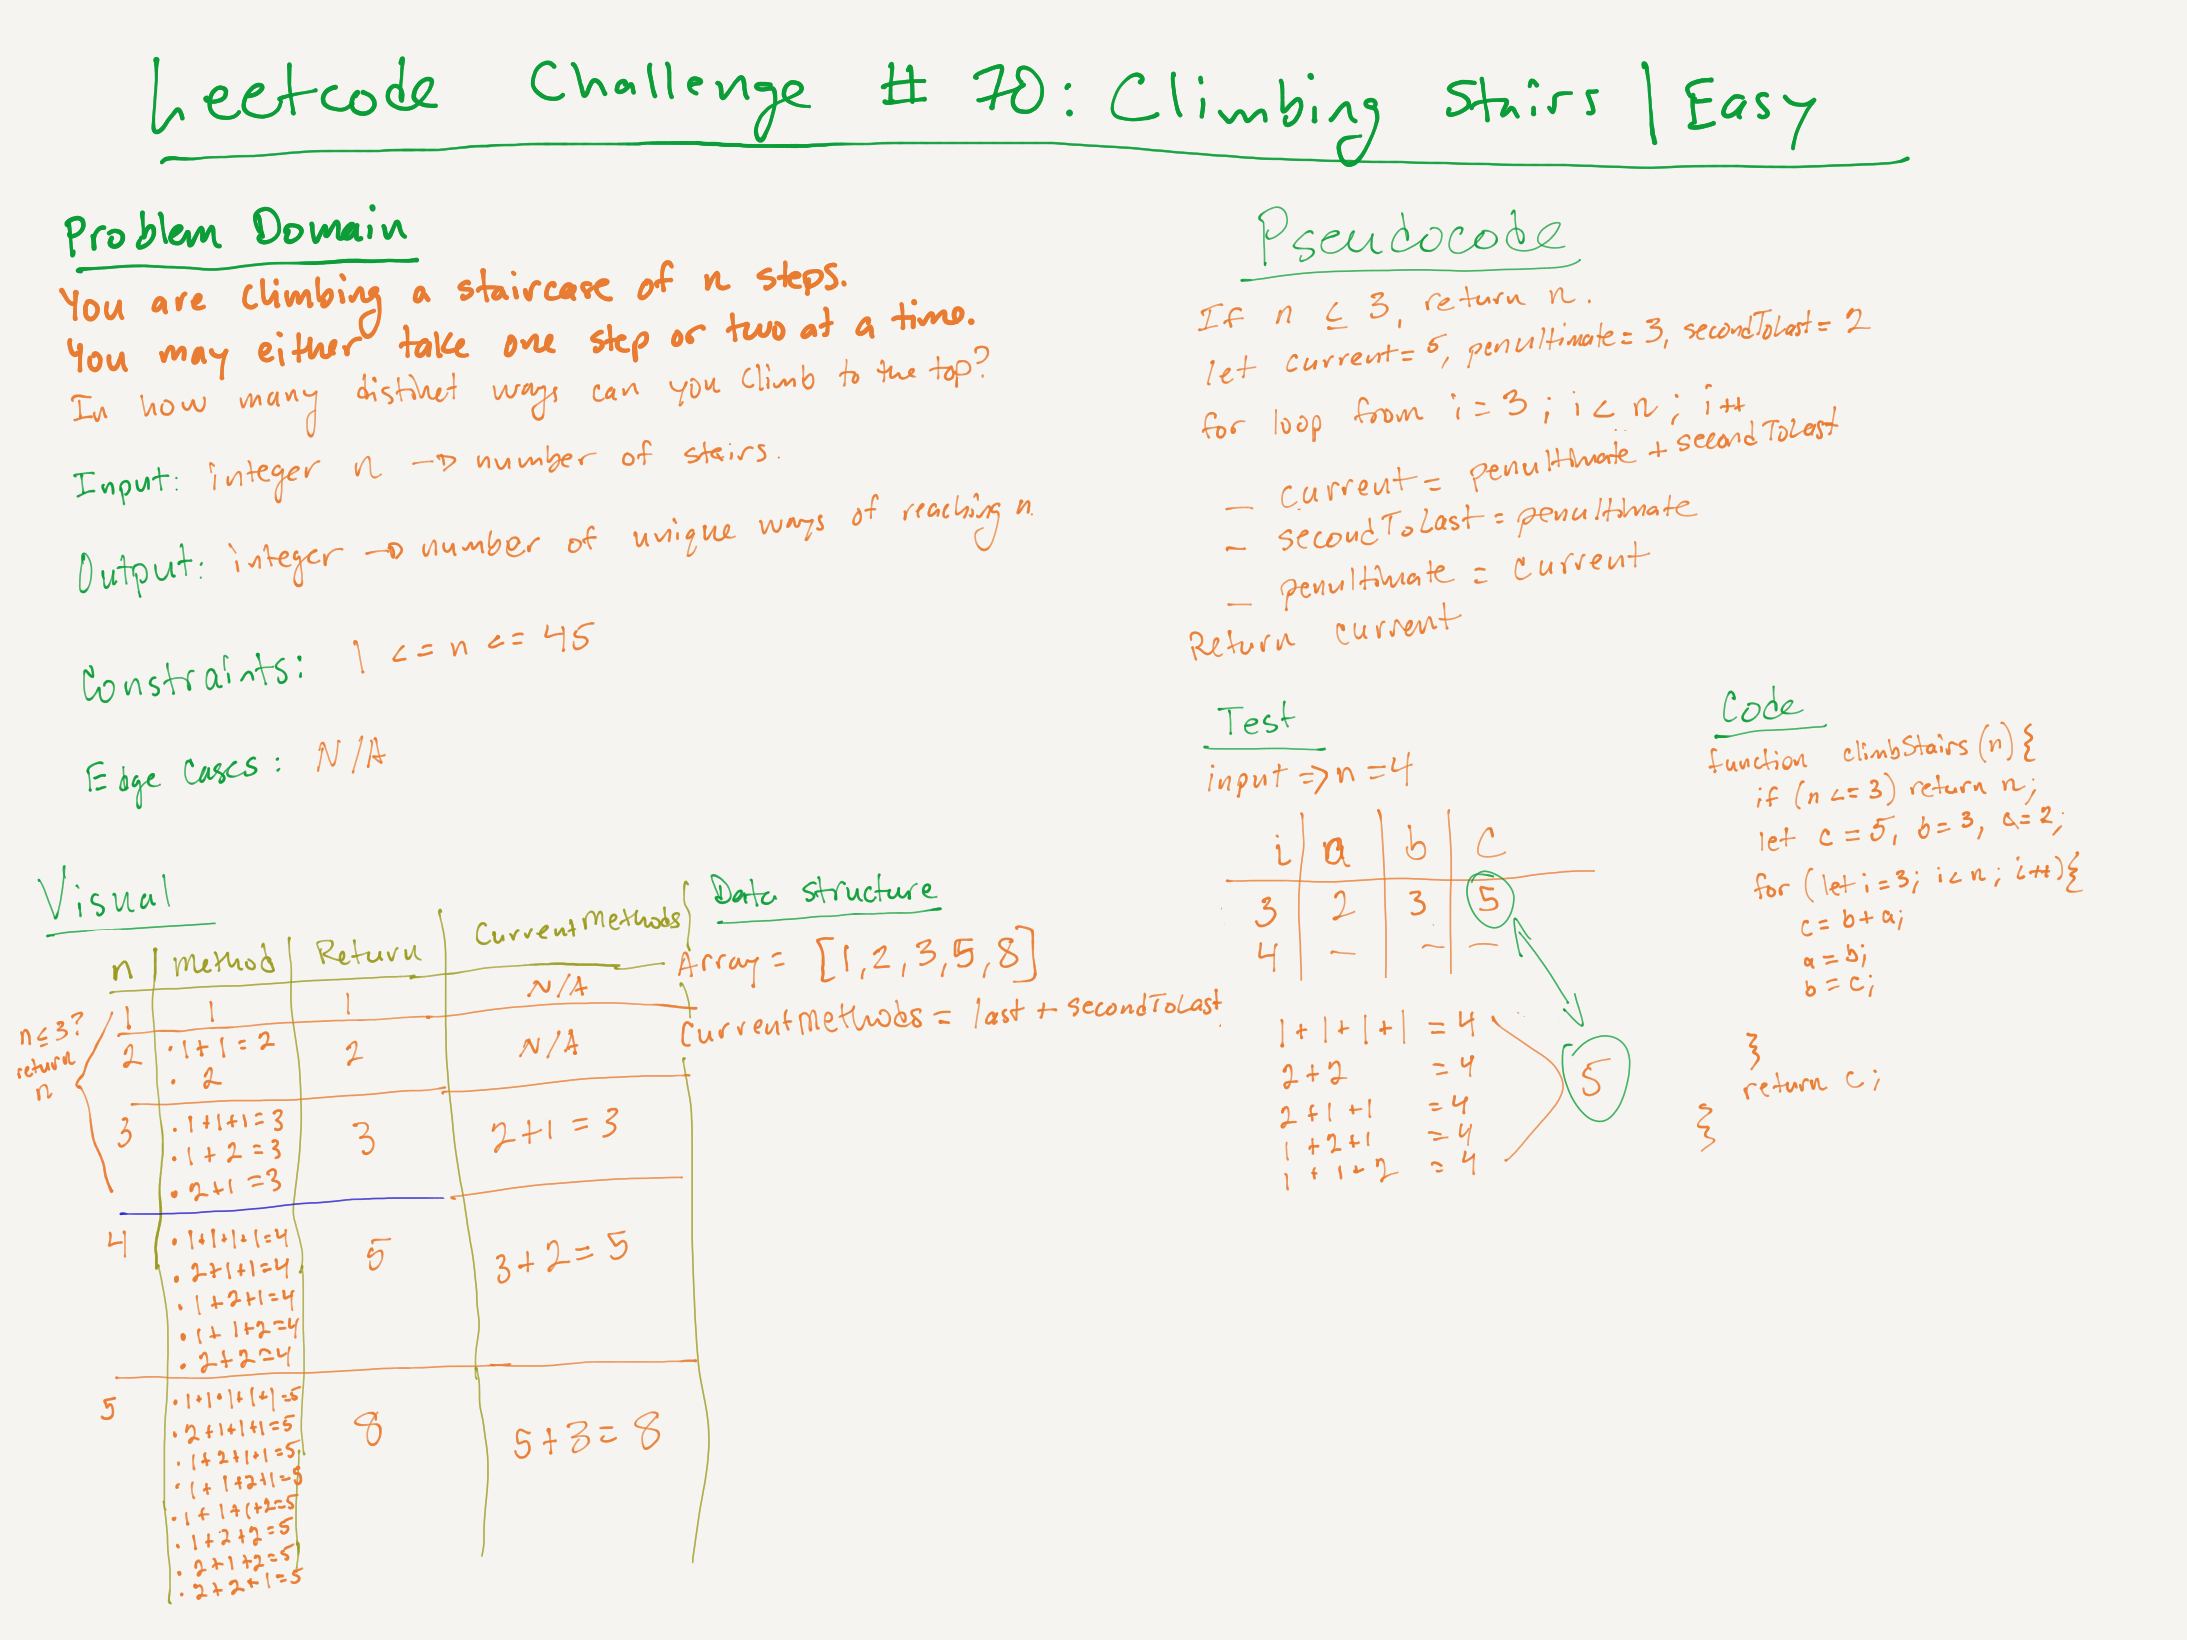 Leetcode Challenge # 70: Climbing Stairs | Easy
Problem Domain
You are climbing a staircase of n steps.
You may either take one step or two at a time.
In how many distinct ways can you climb to the top?
Input: integer n → number of stairs.
Output: integer → number of unique ways of reaching n.
Constraints: 1 <= n <= 45
Edge Cases: N/A
Visual
n | Method | Return | CurrentMethods
n ≤ 3?
return
n
1 | 1 | 1 | N/A
2 | · 1+1=2 | 2 | N/A
· 2
3 | · 1+1+1=3 | 3 | 2+1=3
· 1+2=3
· 2+1=3
4 | · 1+1+1+1=4 | 5 | 3+2=5
· 2+1+1=4
· 1+2+1=4
· 1+1+2=4
· 2+2=4
5 | · 1+1+1+1+1=5 | 8 | 5+3=8
· 2+1+1+1=5
· 1+2+1+1=5
· 1+1+2+1=5
· 1+1+1+2=5
· 1+2+2=5
· 2+1+2=5
· 2+2+1=5
Data structure
Array = [1,2,3,5,8]
CurrentMethods = last + secondToLast
Pseudocode
If n ≤ 3, return n.
let current = 5, penultimate = 3, secondToLast = 2
for loop from i = 3; i < n; i++
— current = penultimate + secondToLast
— secondToLast = penultimate
— penultimate = current
Return current
Test
input => n = 4
i | a | b | c
3 | 2 | 3 | 5
4 | — | — | —
1+1+1+1 = 4
2+2 = 4
2+1+1 = 4
1+2+1 = 4
1+1+2 = 4
5
Code
function climbStairs(n) {
if (n <= 3) return n;
let c = 5, b = 3, a = 2;
for (let i = 3; i < n; i++) {
c = b + a;
a = b;
b = c;
}
return c;
}